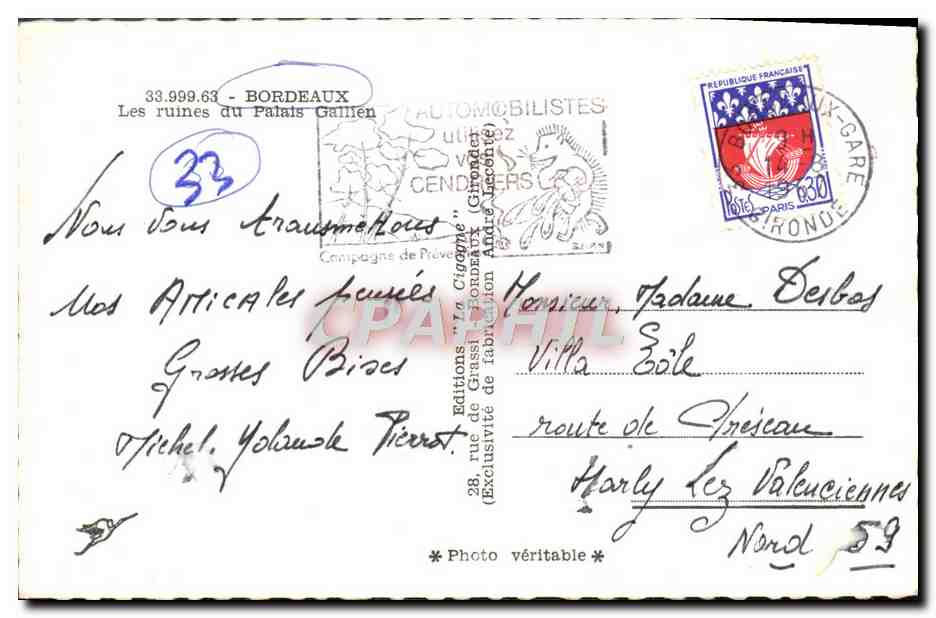 33.999.63 - BORDEAUX
Les ruines du Palais Gallien
33
AUTOMOBILISTES
utilisez
vos
CENDRIERS
Campagne de Préve
REPUBLIQUE FRANÇAISE
POSTES
0,30
PARIS
BORDEAUX-GARE
GIRONDE
Nous vous transmettons
Nos AMICALES pensées
Grosses Bises
Michel. Yolande Pierrot.
Editions "La Cigogne"
28, rue de Grassi - BORDEAUX (Gironde)
(Exclusivité de fabrication André Leconte)
Monsieur, Madame Desbos
Villa Eole
route de Préseau
Marly Lez Valenciennes
Nord 59
* Photo véritable *
CPAPHIL